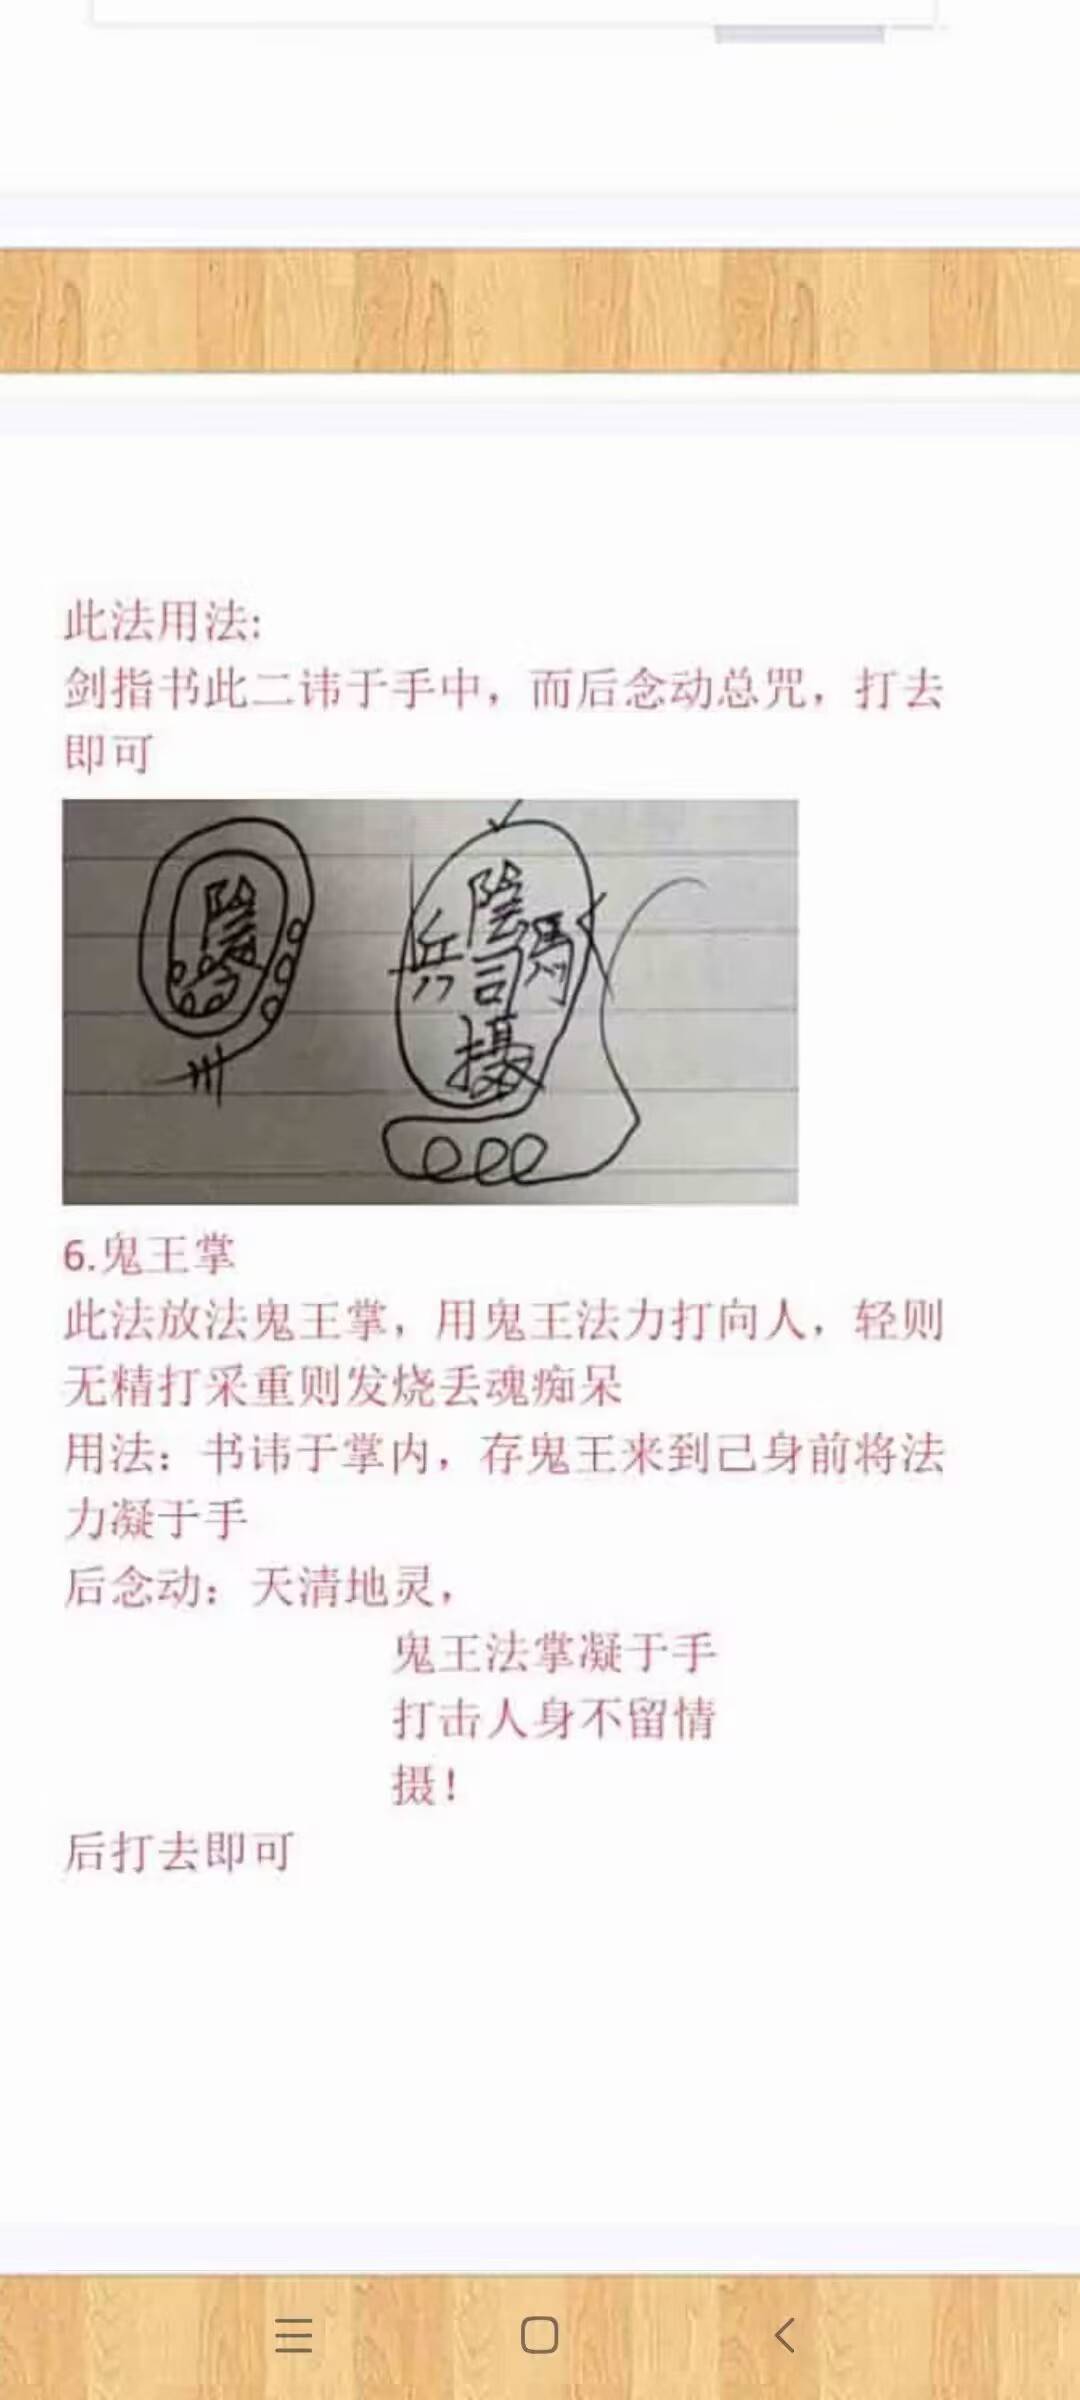 此法用法:
剑指书此二讳于手中，而后念动总咒，打去
即可
陰
陰
兵司馬
攝
6.鬼王掌
此法放法鬼王掌，用鬼王法力打向人，轻则
无精打采重则发烧丢魂痴呆
用法：书讳于掌内，存鬼王来到己身前将法
力凝于手
后念动：天清地灵，
鬼王法掌凝于手
打击人身不留情
摄！
后打去即可